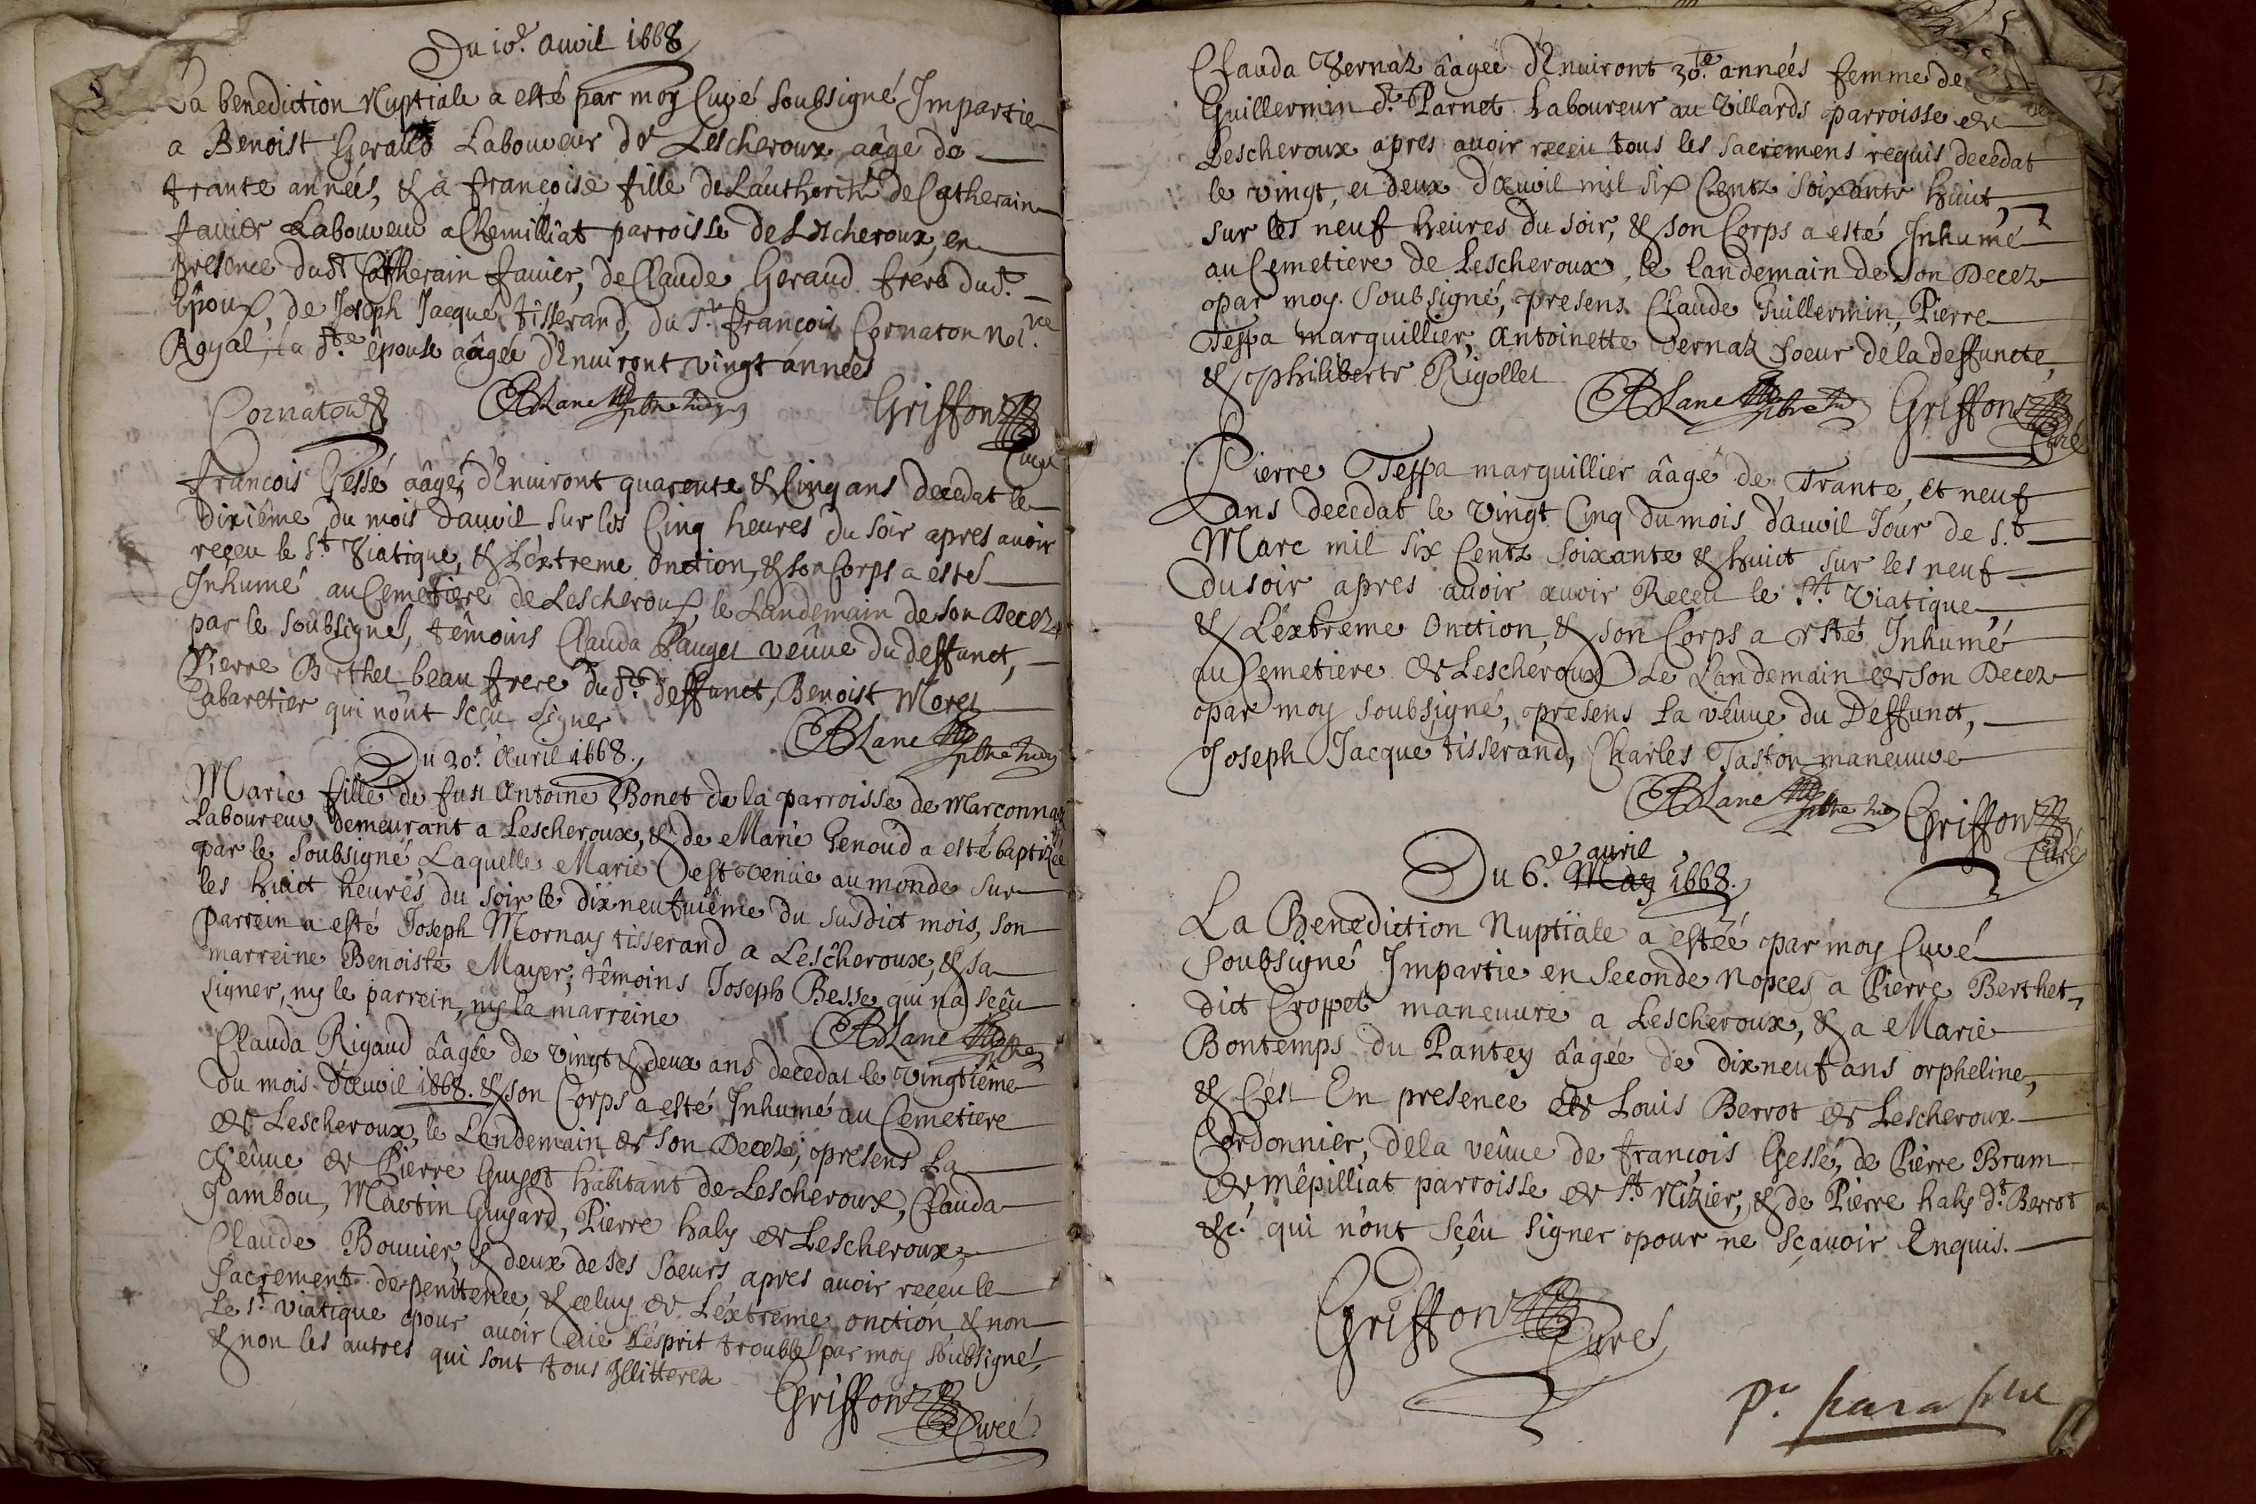 Du 10e. auvil 1668
La benediction Nuptiale a esté par moy Curé Soubsigné Impartie
a Benoist Geraud Laboureur de Lescheroux aâgé de
trante années, & a françoise fille de L'authorité de Catherain
favier Laboureur a Chemilliat parroisse de Lescheroux, en
presence dudt Catherain favier, de Claude Geraud frere dud.
Epoux, de Joseph Jacque tisserand, du Sr. françois Cornaton Nore
Royal, la dte. épouse aâgée d'Enuiront vingt années
Cornaton
ABLane pbre
Griffon
Curé
francois Gessé aâgé, d'Enuiront quarente & Cinq ans decedat le
dixiême du mois d'auvil sur les Cinq heures du soir apres auoir
reçeu le St. Viatique, & L'éxtreme onction, & son Corps a esté
Inhumé au Cemetiere de Lescheroux, le Landemain de son Decez
par le soubsigné, têmoins Clauda Pauget veûue du deffunct,
Pierre Berthet beau frere du dt. deffunct, Benoist Moret
Cabaretier qui n'ônt sçeu signer
ABLane pbre
Du 20e. Auril 1668.
Marie fille de fust Antoine Bonet de la parroisse de Marconnaz
Laboureur demeurant a Lescheroux, & de Marie Genoud a esté baptizée
par le soubsigné, Laquelle Marie est venüe au monde sur
les huict heures du soir le dixneufuiême du susdict mois, son
parrein a esté Joseph Mornay tisserand a Lescheroux, & sa
marreine Benoiste Mayer; têmoins Joseph Besse qui na sçêu
signer, ny le parrein, ny la marreine
ABLane pbre
Clauda Rigaud âagée de vingt & deux ans decedat le vingtiême
du mois d'auvil 1668. & son Corps a esté Inhumé au Cemetiere
de Lescheroux, le Lendemain de son Decez; presens La
veûue de Pierre Guyot habitant de Lescheroux, Clauda
Jambou, Martin Guyard, Pierre haly de Lescheroux,
Claude Bouuier, & deux de ses soeurs apres auoir reçeu le
Sacrement de penitence, & celuy de L'éxtreme onction, & non
le St. viatique pour auoir eüe L'esprit troublé par moy soubsigné,
& non les autres qui sont tous Illitterez
Griffon
Curé
Clauda Vernaz âagée d'Enuiront 30te. années femme de
Guillermin dt. Parnet Laboureur au Villards parroisse de
Lescheroux apres auoir reçeu tous les sacremens requis decedat
le vingt, et deux d'auvil mil six Centz soixante huict,
sur les neuf heures du soir, & son Corps a esté Inhumé
au Cemetiere de Lescheroux, le landemain de son Decez
par moy Soubsigné, presens Claude Guillermin, Pierre
Teppa marguillier, Antoinette Vernaz soeur de la deffuncte,
& philiberte Rigollet
ABLane pbre
Griffon
Curé
Pierre Teppa marguillier âagé de Trante, et neuf
ans decedat le vingt Cinq du mois d'auvil Jour de St.
Marc mil six Centz soixante & huict sur les neuf
du soir apres auoir auoir Reçeu le St. Viatique,
& L'éxtreme Onction, & son Corps a esté Inhumé
au Cemetiere de Lescheroux Le Landemain de son Decez
par moy soubsigné, presens La vêuue du Deffunct,
Joseph Jacque tisserand, Charles Taston maneuure
ABLane pbre
Griffon
Curé
auril
Du 6e. May 1668.
La Benediction Nuptiale a estéé par moy Curé
Soubsigné Impartie en Seconde nopces a Pierre Berthet,
dict Croppet maneuure a Lescheroux, & a Marie
Bontemps du Pantey âagée de dixneuf ans orpheline,
& C'est En presence de Louis Berrot de Lescheroux
Cordonnier, de la veûue de francois Gessé, de Pierre Brum
de mêpilliat parroisse de St. Nizier, & de Pierre haly dt. Berrot
&c. qui n'ont sçêu signer pour ne sçauoir Enquis.
Griffon
Curé
pr. paraphe